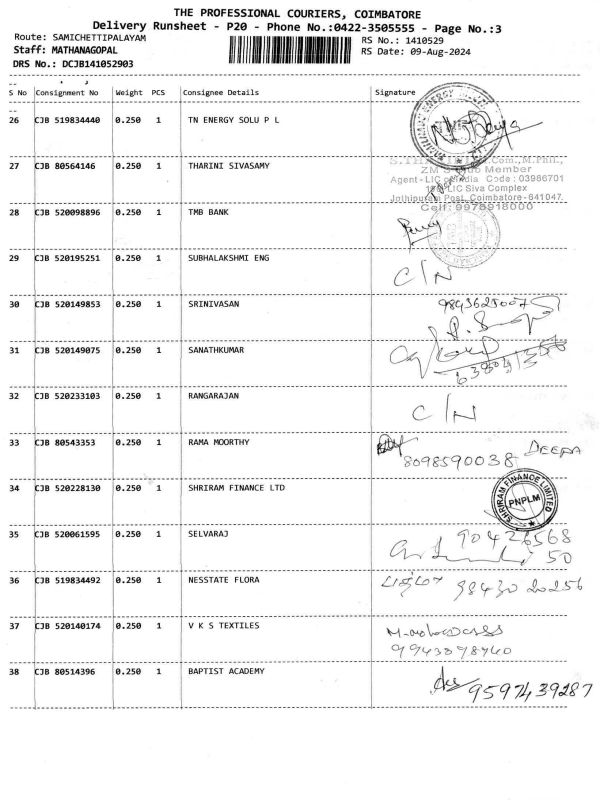 THE PROFESSIONAL COURIERS, COIMBATORE
Delivery Runsheet - P20 - Phone No.:0422-3505555 - Page No.:3
Route: SAMICHETTIPALAYAM
RS No.: 1410529
Staff: MATHANAGOPAL
RS Date: 09-Aug-2024
DRS No.: DCJB141052903
S No Consignment No Weight PCS Consignee Details Signature
26 CJB 519834440 0.250 1 TN ENERGY SOLU P L
27 CJB 80564146 0.250 1 THARINI SIVASAMY
Com., M.Phil.,
ZM Club Member
Agent - LIC of India Code : 03986701
LIC Siva Complex
Jothipuram Post, Coimbatore - 641047.
Cell: 9978918000
28 CJB 520098896 0.250 1 TMB BANK
29 CJB 520195251 0.250 1 SUBHALAKSHMI ENG C/N
30 CJB 520149853 0.250 1 SRINIVASAN 9843625007
31 CJB 520149075 0.250 1 SANATHKUMAR
32 CJB 520233103 0.250 1 RANGARAJAN C/N
33 CJB 80543353 0.250 1 RAMA MOORTHY 8098590038 DEEPA
34 CJB 520228130 0.250 1 SHRIRAM FINANCE LTD
SHRIRAM FINANCE LIMITED
PNPLM
35 CJB 520061595 0.250 1 SELVARAJ 90426568
50
36 CJB 519834492 0.250 1 NESSTATE FLORA 98430 20256
37 CJB 520140174 0.250 1 V K S TEXTILES
9943898940
38 CJB 80514396 0.250 1 BAPTIST ACADEMY 9597439287